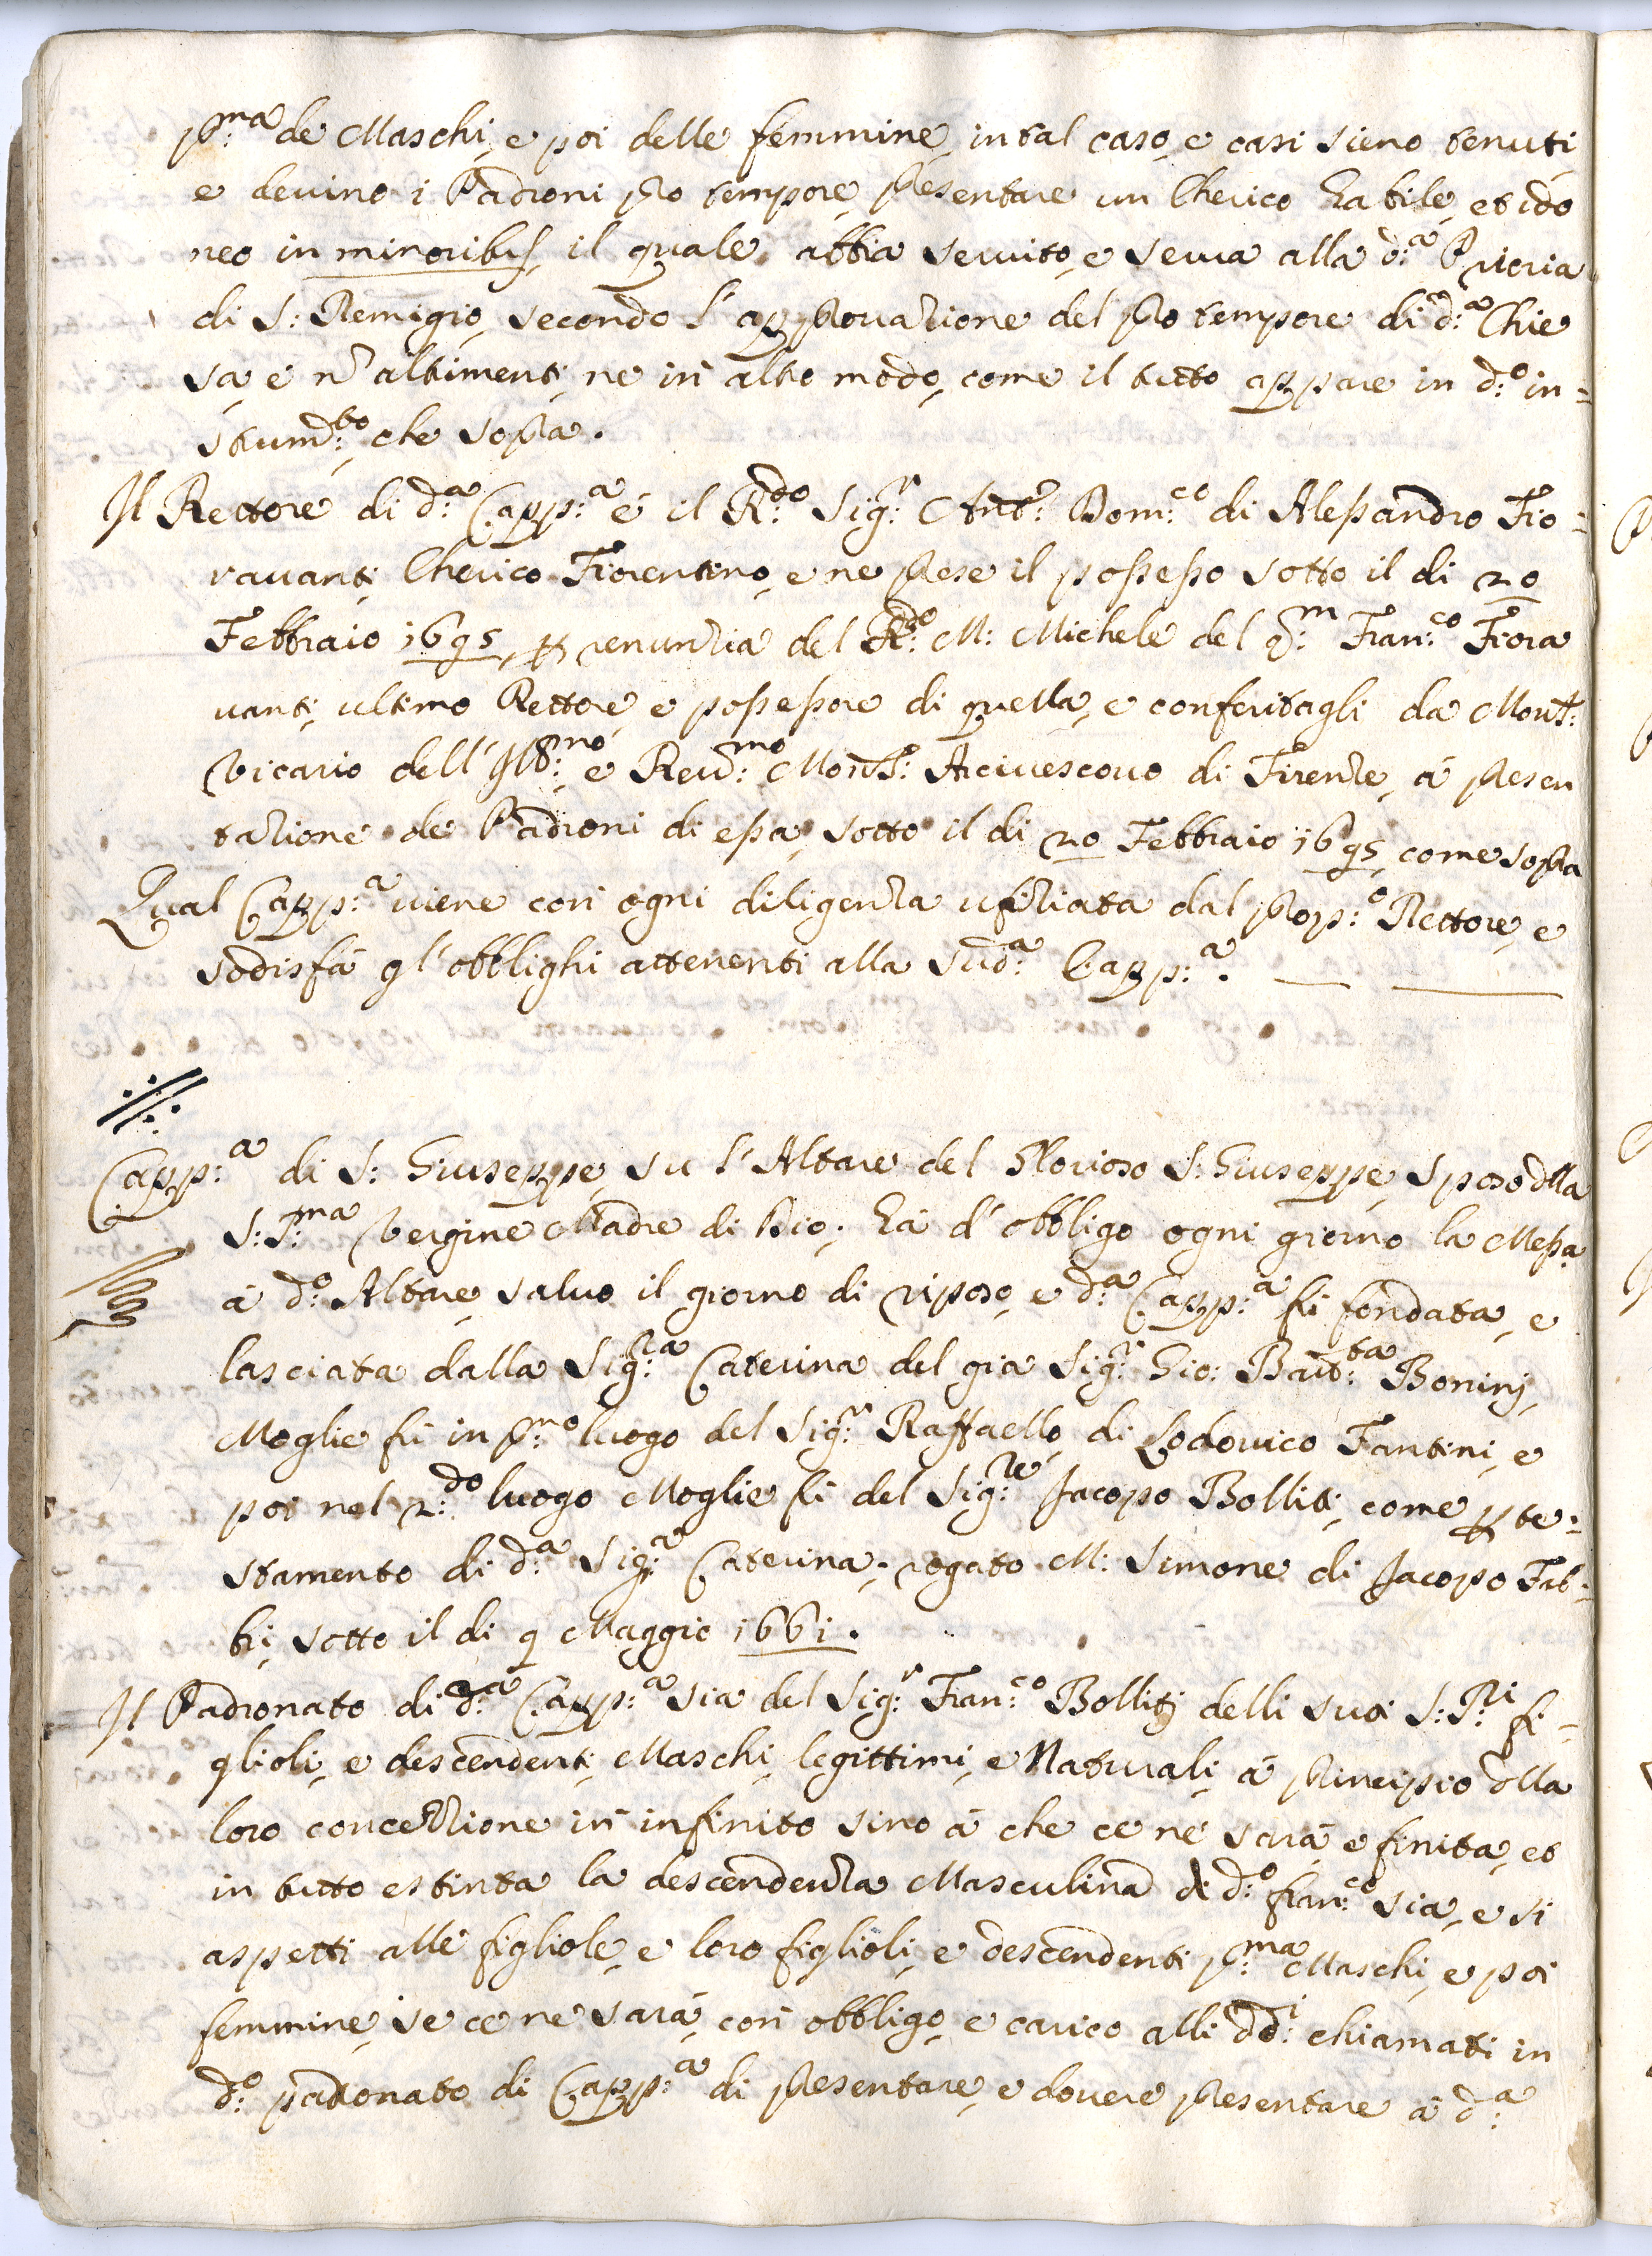 p:ma de Maschi, e poi delle femmine, in tal caso, e casi sieno tenuti
e devino i Padroni pro tempore, presentare un Cherico habile, et ido
neo in minoribus, il quale abbia servito, e serva alla d:a Prioria
di S: Remigio, secondo l'approvazione del pro tempore di d:a Chie
sa, e n altrimenti, ne in altro modo, come il tutto appare in d:o in=
strum:to che sopra.
Il Rettore di d:a Capp:a é il R:do Sig:r Ant:o Dom:co di Alessandro Fio=
ravanti, Cherico Fiorentino, e ne prese il possesso sotto il di 20
Febbraio 1695, per renunzia del R:do M: Michele del q:m Fran:co Fiora
vanti, ultimo Rettore e possessore di quella, e conferitagli da Mons:
Vicario dell'Ill:mo e Rev:mo Mons: Arcivescovo di Firenze, á presen
tazione de Padroni di essa, sotto il di 20 Febbraio 1695, come sopra
Qual Capp:a viene con ogni diligenza ufiziata dal prop:o Rettore, e
sodisfá gl'obblighi attenenti alla sud:a Capp:a.
Capp:a di S: Giuseppe, su l'Altare del Glorioso S: Giuseppe, sposo dlla
S:S:ma Vergine Madre di Dio; há d'obbligo ogni giorno la Messa
á d:o Altare salvo il giorno di riposo, e d:a Capp:a fu fondata, e
lasciata dalla Sig:ra Caterina del gia Sig:r Gio: Batt:ta Bonini,
Moglie fu in p:mo luogo del Sig:r Raffaello di Lodovico Fantini, e
poi nel 2:do luogo Moglie fu del Sig:re Jacopo Bolliti, come per te=
stamento di d:a Sig:a Caterina, rogato M: Simone di Jacopo Fab=
bri, sotto il di 9 Maggio 1661.
Il Padronato di d:a Capp:a sia del Sig:r Fran:co Bolliti delli suoi S:S:ri fi=
glioli, e descendenti Maschi, legittimi, e Naturali, á principio dlla
loro concezzione in infinito sino á che ce ne sará e finita, et
in tutto estinta la descendenza Masculina di d:o Fran:co sia, e si
aspetti alle figliole, e loro figlioli, e descendenti p:ma Maschi, e poi
femmine, se ce ne sará, con obbligo, e carico alli dd:i chiamati in
d:o padronato di Capp:a di presentare, e dovere presentare á d:a